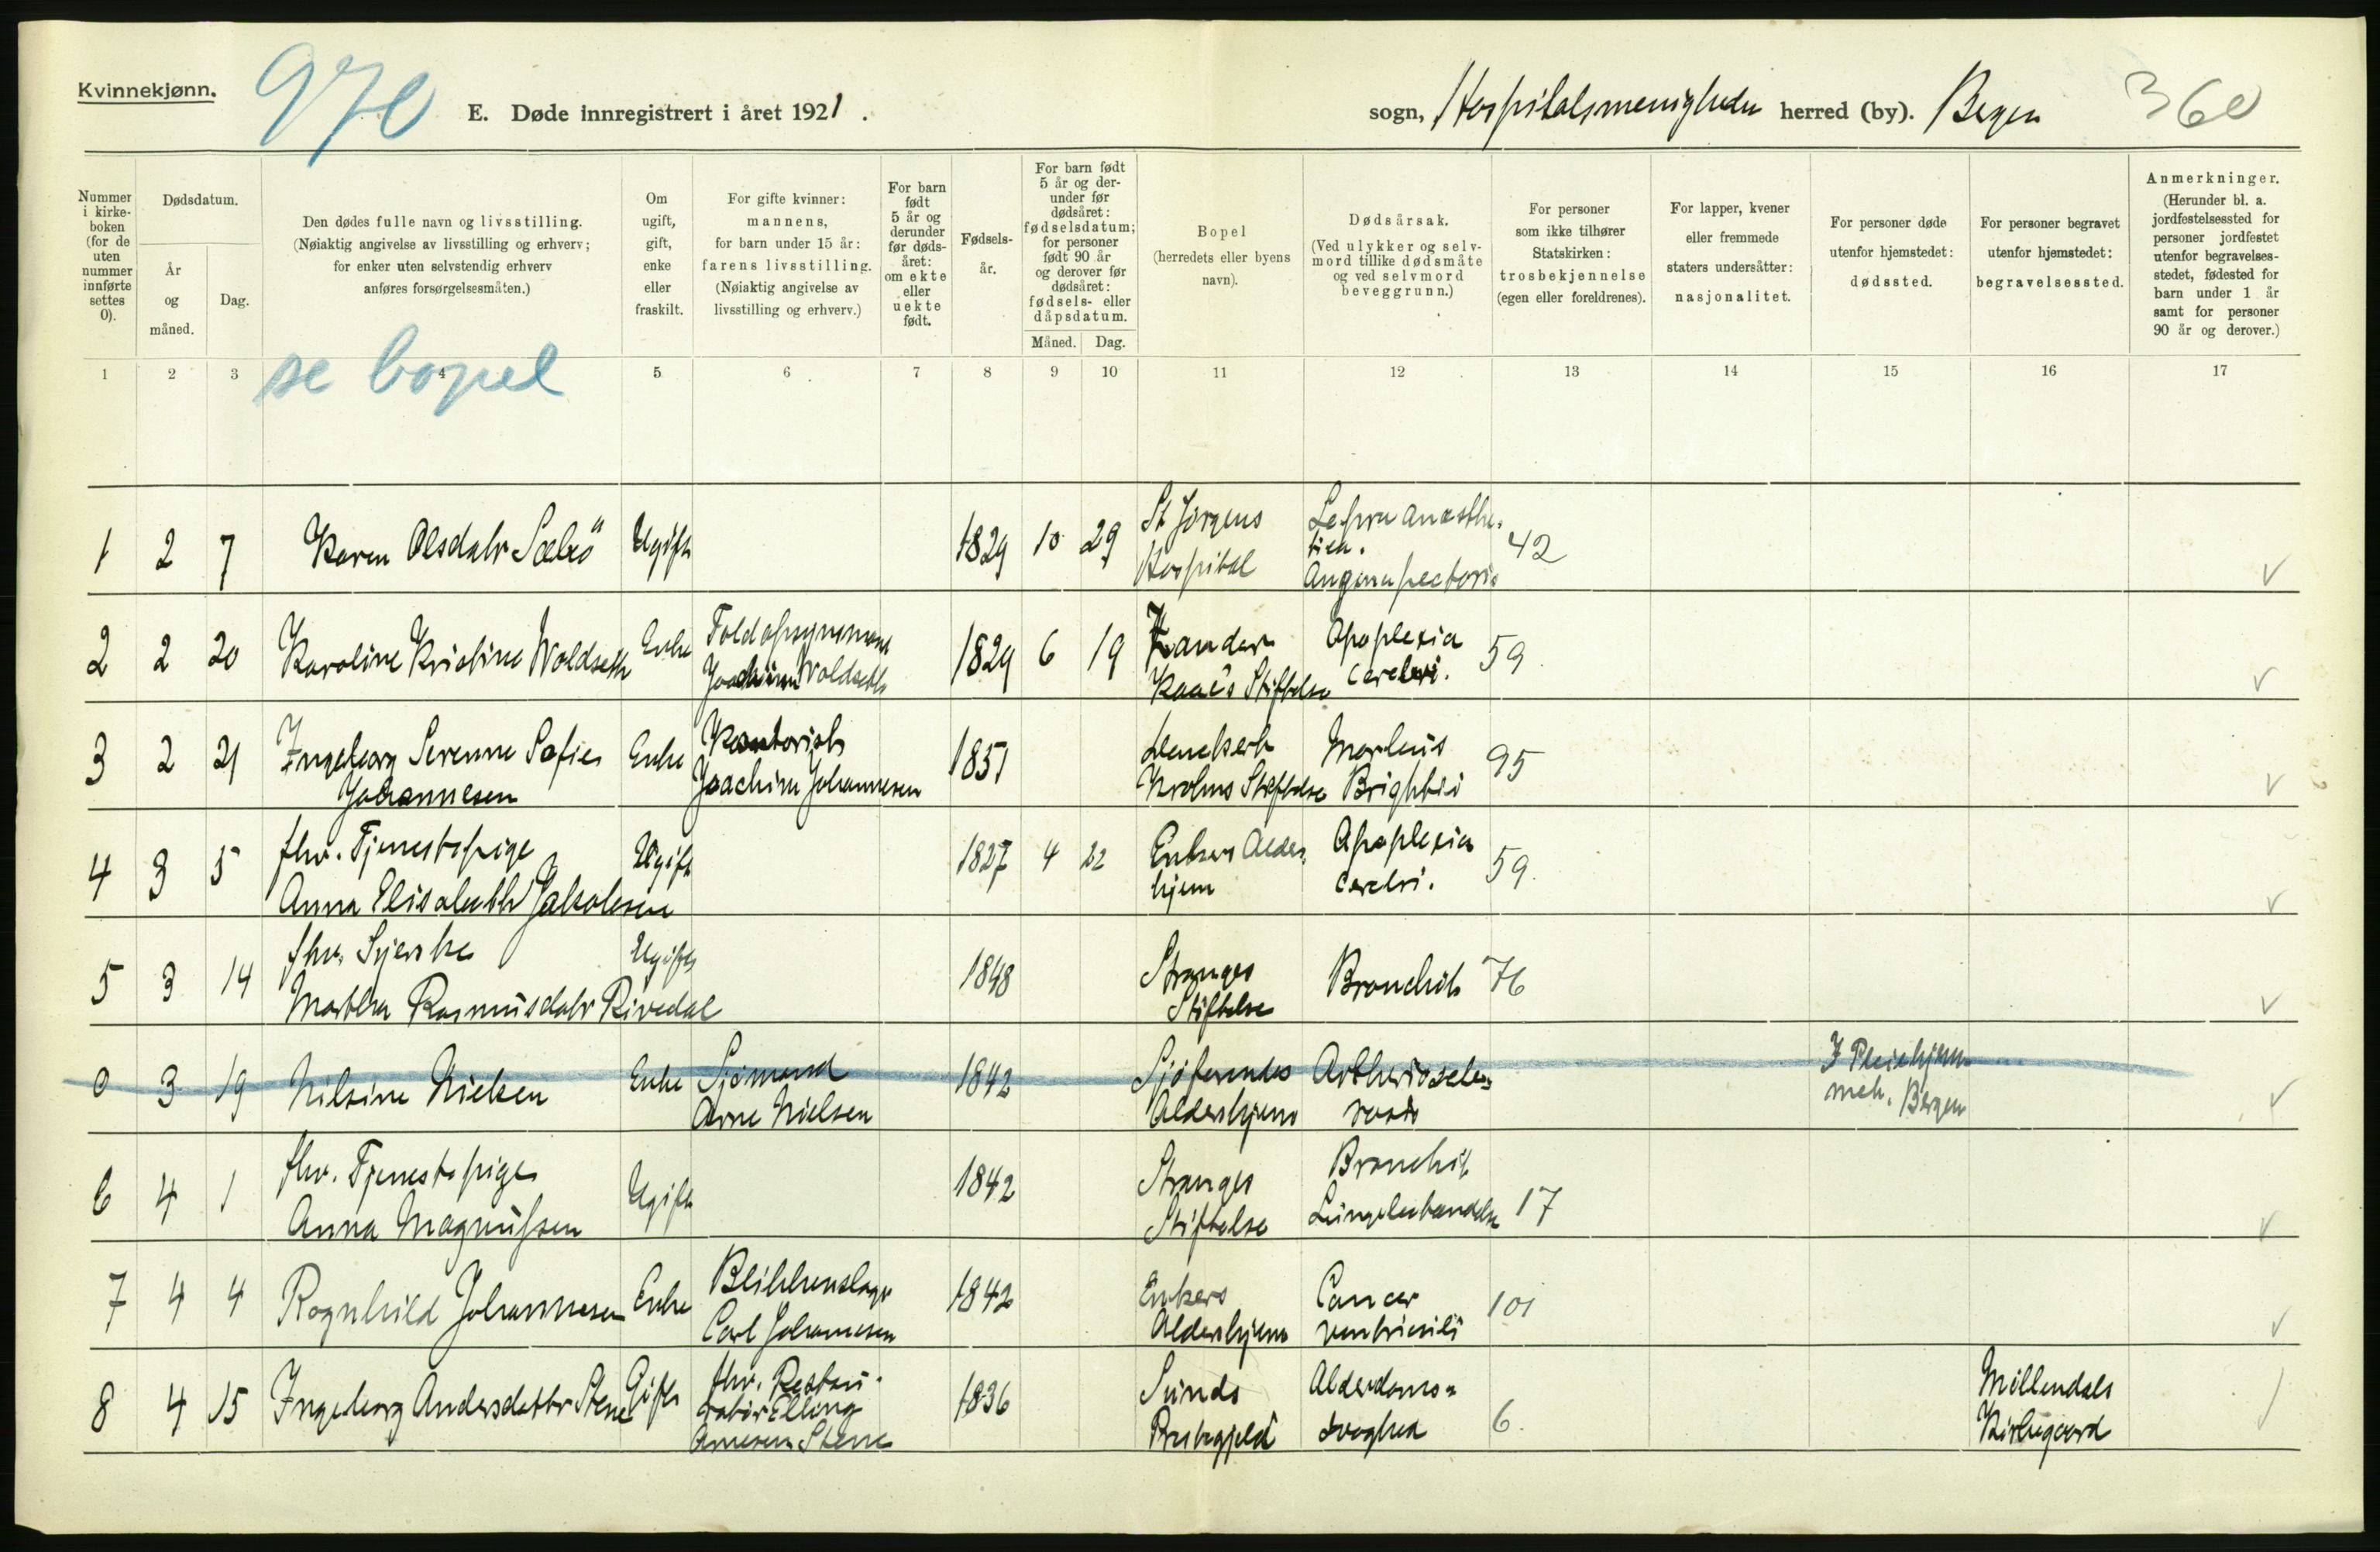 Kvinnekjønn.
970
E. Døde innregistrert i året 1921.
sogn, Hospitalsmenigheden herred (by). Bergen
360
Nummer i kirkeboken (for de uten nummer innførte settes 0).
Dødsdatum.
År og måned.
Dag.
Den dødes fulle navn og livsstilling.
(Nøiaktig angivelse av livsstilling og erhverv;
for enker uten selvstendig erhverv
anføres forsørgelsesmåten.)
Om ugift, gift, enke eller fraskilt.
For gifte kvinner:
mannens,
for barn under 15 år:
farens livsstilling.
(Nøiaktig angivelse av
livsstilling og erhverv.)
For barn født 5 år og derunder før dødsåret: om ekte eller uekte født.
Fødselsår.
For barn født 5 år og derunder før dødsåret: fødselsdatum; for personer født 90 år og derover før dødsåret: fødsels- eller dåpsdatum.
Måned. Dag.
Bopel
(herredets eller byens
navn).
Dødsårsak.
(Ved ulykker og selvmord tillike dødsmåte og ved selvmord beveggrunn.)
For personer
som ikke tilhører
Statskirken:
trosbekjennelse
(egen eller foreldrenes).
For lapper, kvener
eller fremmede
staters undersåtter:
nasjonalitet.
For personer døde
utenfor hjemstedet:
dødssted.
For personer begravet
utenfor hjemstedet:
begravelsessted.
Anmerkninger.
(Herunder bl. a.
jordfestelsessted for
personer jordfestet
utenfor begravelsesstedet, fødested for
barn under 1 år
samt for personer
90 år og derover.)
1 2 3 4 5 6 7 8 9 10 11 12 13 14 15 16 17
se bopel
1 2 7 Karen Olsdatr Sælsö Ugift 1829 10 29 St Jörgens Hospital Lepra anæsthetica. Angina pectoris 42
2 2 20 Karoline Kristine Woldseth Enke Toldopsynsmand Joachim Woldseth 1829 6 19 Zander Kaaes Stiftelse Apoplexia cerebri. 59
3 2 21 Ingeborg Serenne Sofie Johannesen Enke Kontorist Joachim Johannesen 1851 Krohns Stiftelse Morbus Brightii 95
4 3 5 fhv. Tjenestepige Anna Elisabeth Jakobsen Ugift 1827 4 22 Enkers Alderhjem Apoplexia cerebri. 59.
5 3 14 fhv. Syerske Martha Rasmusdatr Rivedal Ugift 1848 Stranges Stiftelse Bronchit 76
0 3 19 Nilsine Nielsen Enke Sjömand Arne Nielsen 1842 Sjöfarendes Aldershjem I Pleiehjem meh. Bergen
6 4 1 fhv. Tjenestepige Anna Magnussen Ugift 1842 Stranges Stiftelse Bronchit Lungebetændelse 17
7 4 4 Ragnhild Johannesen Enke Blikkenslager Carl Johannesen 1842 Enkers Aldershjem Cancer ventriculi 101
8 4 15 Ingeborg Andersdatter Stene Gift fhv. Restauratör Elling Arnesen Stene 1836 Sunds Prestegjeld Alderdomssvaghed 6. Möllendals Kirkegaard